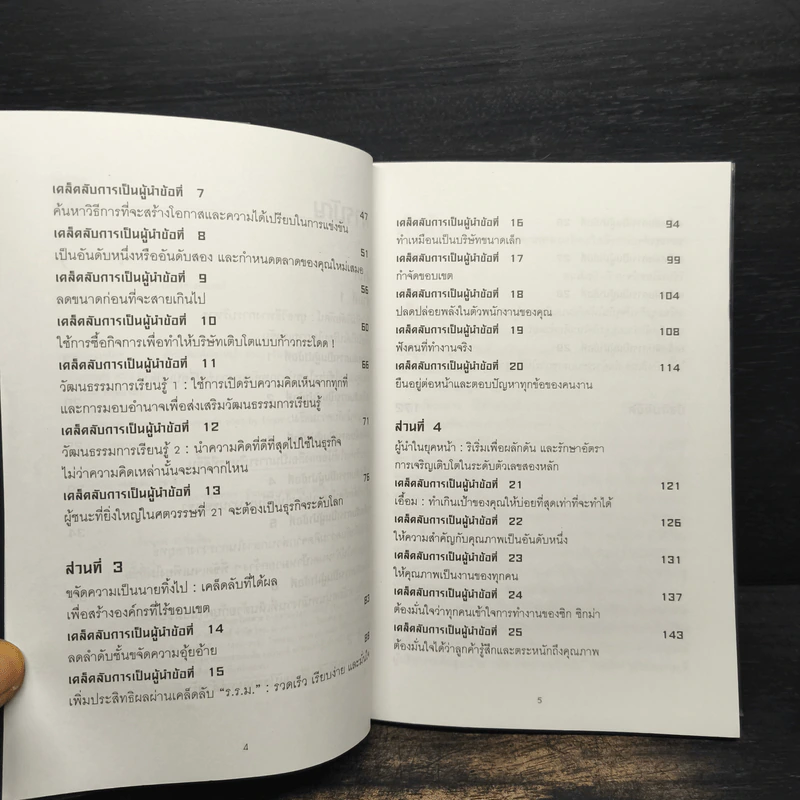 เคล็ดลับการเป็นผู้นำข้อที่ 7
ค้นหาวิธีการที่จะสร้างโอกาสและความได้เปรียบในการแข่งขัน 47
เคล็ดลับการเป็นผู้นำข้อที่ 8
เป็นอันดับหนึ่งหรืออันดับสอง และกำหนดตลาดของคุณใหม่เสมอ 51
เคล็ดลับการเป็นผู้นำข้อที่ 9
ลดขนาดก่อนที่จะสายเกินไป 56
เคล็ดลับการเป็นผู้นำข้อที่ 10
ใช้การซื้อกิจการเพื่อทำให้บริษัทเติบโตแบบก้าวกระโดด ! 60
เคล็ดลับการเป็นผู้นำข้อที่ 11 66
วัฒนธรรมการเรียนรู้ 1 : ใช้การเปิดรับความคิดเห็นจากทุกที่
และการมอบอำนาจเพื่อส่งเสริมวัฒนธรรมการเรียนรู้
เคล็ดลับการเป็นผู้นำข้อที่ 12 71
วัฒนธรรมการเรียนรู้ 2 : นำความคิดที่ดีที่สุดไปใช้ในธุรกิจ
ไม่ว่าความคิดเหล่านั้นจะมาจากไหน
เคล็ดลับการเป็นผู้นำข้อที่ 13 76
ผู้ชนะที่ยิ่งใหญ่ในศตวรรษที่ 21 จะต้องเป็นธุรกิจระดับโลก
ส่วนที่ 3
ขจัดความเป็นนายทิ้งไป : เคล็ดลับที่ได้ผล
เพื่อสร้างองค์กรที่ไร้ขอบเขต
เคล็ดลับการเป็นผู้นำข้อที่ 14 83
ลดลำดับชั้นขจัดความอุ้ยอ้าย
เคล็ดลับการเป็นผู้นำข้อที่ 15
เพิ่มประสิทธิผลผ่านเคล็ดลับ "ร.ร.ม." : รวดเร็ว เรียบง่าย และมั่นใจ
4
เคล็ดลับการเป็นผู้นำข้อที่ 16 94
ทำเหมือนเป็นบริษัทขนาดเล็ก
เคล็ดลับการเป็นผู้นำข้อที่ 17 99
กำจัดขอบเขต
เคล็ดลับการเป็นผู้นำข้อที่ 18 104
ปลดปล่อยพลังในตัวพนักงานของคุณ
เคล็ดลับการเป็นผู้นำข้อที่ 19 108
ฟังคนที่ทำงานจริง
เคล็ดลับการเป็นผู้นำข้อที่ 20 114
ยืนอยู่ต่อหน้าและตอบปัญหาทุกข้อของคนงาน
ส่วนที่ 4
ผู้นำในยุคหน้า : ริเริ่มเพื่อผลักดัน และรักษาอัตรา
การเจริญเติบโตในระดับตัวเลขสองหลัก
เคล็ดลับการเป็นผู้นำข้อที่ 21 121
เอื้อม : ทำเกินเป้าของคุณให้บ่อยที่สุดเท่าที่จะทำได้
เคล็ดลับการเป็นผู้นำข้อที่ 22 126
ให้ความสำคัญกับคุณภาพเป็นอันดับหนึ่ง
เคล็ดลับการเป็นผู้นำข้อที่ 23 131
ให้คุณภาพเป็นงานของทุกคน
เคล็ดลับการเป็นผู้นำข้อที่ 24 137
ต้องมั่นใจว่าทุกคนเข้าใจการทำงานของซิก ซิกม่า
เคล็ดลับการเป็นผู้นำข้อที่ 25 143
ต้องมั่นใจได้ว่าลูกค้ารู้สึกและตระหนักถึงคุณภาพ
5